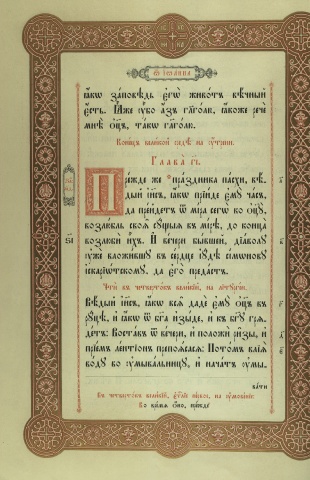 Ѿ іѡанна
ꙗ҆́кѡ за́повѣдь є҆гѡ̀ живо́тъ вѣ́чный
є҆́сть. Ꙗ҆̀же ᲂу҆̀бо а҆́зъ гл҃ю, ꙗ҆́коже речѐ
мнѣ̀ ѻ҆ц҃ъ, та́кѡ гл҃ю.
Коне́цъ вели́кой средѣ̀ на ᲂу҆́трени.
Глава̀ г҃і.
Пре́жде же пра́здника па́схи, вѣ́-
дый і҆и҃съ, ꙗ҆́кѡ прїи́де є҆мꙋ̀ ча́съ,
да пре́йдетъ ѿ мі́ра сегѡ̀ ко ѻ҆ц҃ꙋ̀,
возлю́бль своѧ̑ сꙋ́щыѧ въ мі́рѣ, до конца̀
возлюбѝ и҆̀хъ. И҆ ве́чери бы́вшей, дїа́волꙋ
ᲂу҆жѐ вложи́вшꙋ въ се́рдце і҆ꙋ́дѣ сі́мѡновꙋ
і҆скарїѡ́тскомꙋ, да є҆го̀ преда́стъ.
Чтѝ въ четверто́къ вели́кїй, на лїтꙋргі́и.
Вѣ́дый і҆и҃съ, ꙗ҆́кѡ всѧ̑ дадѐ є҆мꙋ̀ ѻ҆ц҃ъ въ
рꙋ́цѣ, и҆ ꙗ҆́кѡ ѿ бг҃а и҆зы́де, и҆ къ бг҃ꙋ грѧ-
де́тъ: Воста́въ ѿ ве́чери, и҆ положѝ ри̑зы, и҆
прїе́мь ле́нтїонъ препоѧ́сасѧ: Пото́мъ влїѧ̀
во́дꙋ во ᲂу҆мыва́льницꙋ, и҆ нача́тъ ᲂу҆мы-
ва́ти
Въ четверто́къ вели́кїй, є҆ѵⷢ҇лїе пе́рвое, на ᲂу҆мове́нїе
Во вре́мѧ ѻ҆́но,